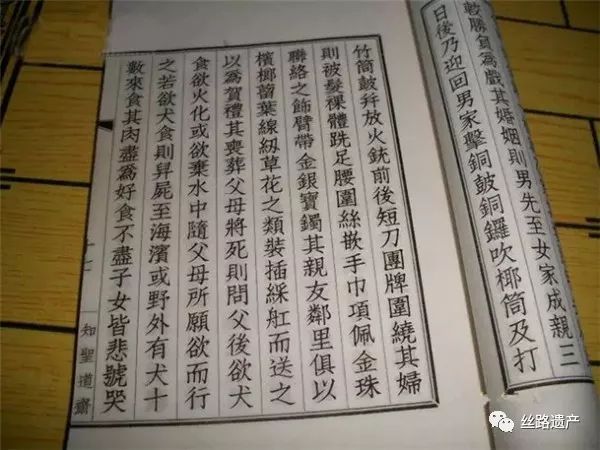 勝負為戲其婚姻則男先至女家成親三
日後乃迎回男家擊銅皷銅鑼吹椰筒及打
竹筒皷并放火銃前後短刀團牌圍繞其婦
則被髮裸體跣足腰圍絲嵌手巾項佩金珠
聯絡之飾臂帶金銀寶鐲其親友鄰里俱以
檳榔蔞葉線紉草花之類裝插綵舡而送之
以為賀禮其喪葬父母將死則問父後欲犬
食欲火化或欲棄水中隨父母所願欲而行
之若欲犬食則舁屍至海濱或野外有犬十
數來食其肉盡為好食不盡子女皆悲號哭
知聖道齋
丝路遗产